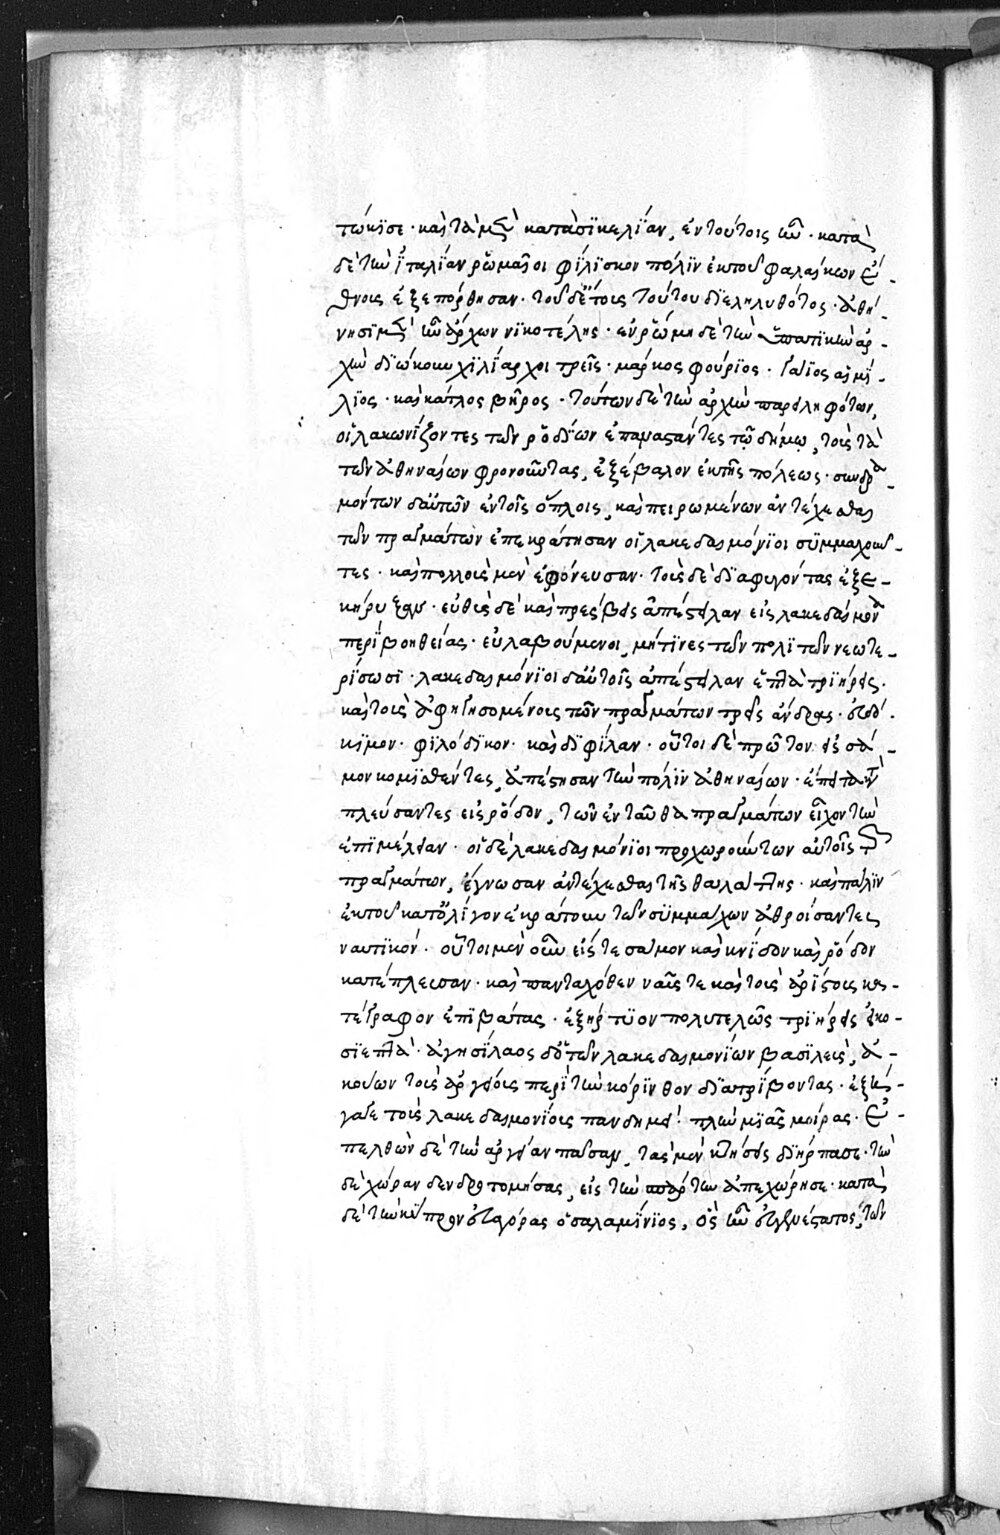 τώκϊσε · καὶ τὰ μὲν κατὰ σϊκελΐαν, ἐν τούτοις ἦν · κατὰ
δὲ τὴν ἰταλίαν ῥωμαῖοι φίλϊσκον πόλϊν ἐκ τοῦ φαλάσκων ἔ-
θνους ἐξεπόρθησαν · τοῦ δ' ἔτους τούτου διεληλυθότος · ἀθή-
νησϊ μὲν ἦν ἄρχων νϊκοτέλης · ἐν ῥώμη δὲ τὴν ὑπατϊκὴν ἀρ-
χὴν διώκουν χϊλίαρχοι τρεῖς · μάρκος φούριος · γάϊος αἰμί-
λϊος · καὶ κάτλος βῆρος · τούτων δὲ τὴν ἀρχὴν παρειληφότων,
οἱ λακωνίζοντες τῶν ῥοδΐων ἐπαναστάντες τῶ δήμω, τοὺς τὰ
τῶν ἀθηναίων φρονοῦντας, ἐξέβαλον ἐκ τῆς πόλεως · συνδρα-
μόντων δ' αὐτῶν ἐν τοῖς ὅπλοις, καὶ πειρωμένων ἀντέχεσθαι
τῶν πραγμάτων ἐπεκράτησαν οἱ λακεδαιμόνϊοι σϋμμαχοῦν-
τες · καὶ πολλοὺς μὲν ἐφόνευσαν · τοὺς δὲ διαφυγόντας ἐξε-
κήρυξαν · εὐθὺς δὲ καὶ πρέσβεις ἀπέστειλαν εἰς λακεδαίμονα
περὶ βοηθείας · εὐλαβούμενοι, μήτϊνες τῶν πολϊτῶν νεωτε-
ρίσωσϊ · λακεδαιμόνϊοι δ' αὐτοῖς ἀπέστειλαν ἑπτὰ τρϊήρεις ·
καὶ τοὺς ἀφηγησομένους τῶν πραγμάτων τρεῖς ἄνδρας · εὐδό-
κϊμον · φϊλόδϊκον · καὶ δϊφίλαν · οὗτοι δὲ πρῶτον εἰς σά-
μον κομισθέντες, ἀπέστησαν τὴν πόλϊν ἀθηναίων · ἔπειτα δὲ
πλεύσαντες εἰς ῥόδον, τῶν ἐνταῦθα πραγμάτων εἶχον τὴν
ἐπϊμέλειαν · οἱ δὲ λακεδαιμόνϊοι προχωρούντων αὐτοῖς τῶν
πραγμάτων, ἔγνωσαν ἀντέχεσθαι τῆς θαλάττης · καὶ πάλϊν
ἐκ τοῦ κατ' ὀλίγον ἐκράτουν τῶν σϋμμάχων ἀθροίσαντες
ναυτϊκόν · οὗτοι μὲν οὖν εἴς τε σάμον καὶ κνίδον καὶ ῥόδον
κατέπλευσαν · καὶ πανταχόθεν ναῦς τε καὶ τοὺς ἀρίστους κα-
τέγραφον ἐπϊβάτας · ἐξήρτϋον πολυτελῶς τρϊήρεις εἰκο-
σϊεπτά · ἀγησΐλαος δ' ὁ τῶν λακεδαιμονίων βασϊλεὺς, ἀ-
κούων τοὺς ἀργείους περὶ τὴν κόρϊνθον δϊατρΐβοντας · ἐξή-
γαγε τοὺς λακεδαιμονΐους πανδημεί · πλὴν μϊᾶς μοίρας · ἐ-
πελθὼν δὲ τὴν ἀργείαν πᾶσαν, τὰς μὲν κτήσεις διήρπασε · τὴν
δὲ χώραν δενδροτομήσας, εἰς τὴν σπάρτην ἀπεχώρησε · κατὰ
δὲ τὴν κύπρον εὐαγόρας ὁ σαλαμΐνϊος, ὃς ἦν εὐγενέστατος, τῶν